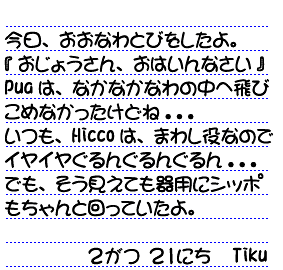 今日、おおなわとびをしたよ。
『おじょうさん、おはいんなさい』
Puaは、なかなかなわの中へ飛び
こめなかったけどね...
いつも、Hiccoは、まわし役なので
イヤイヤぐるんぐるんぐるん...
でも、そう見えても器用にシッポ
もちゃんと回っていたよ。
2がつ 21にち Tiku